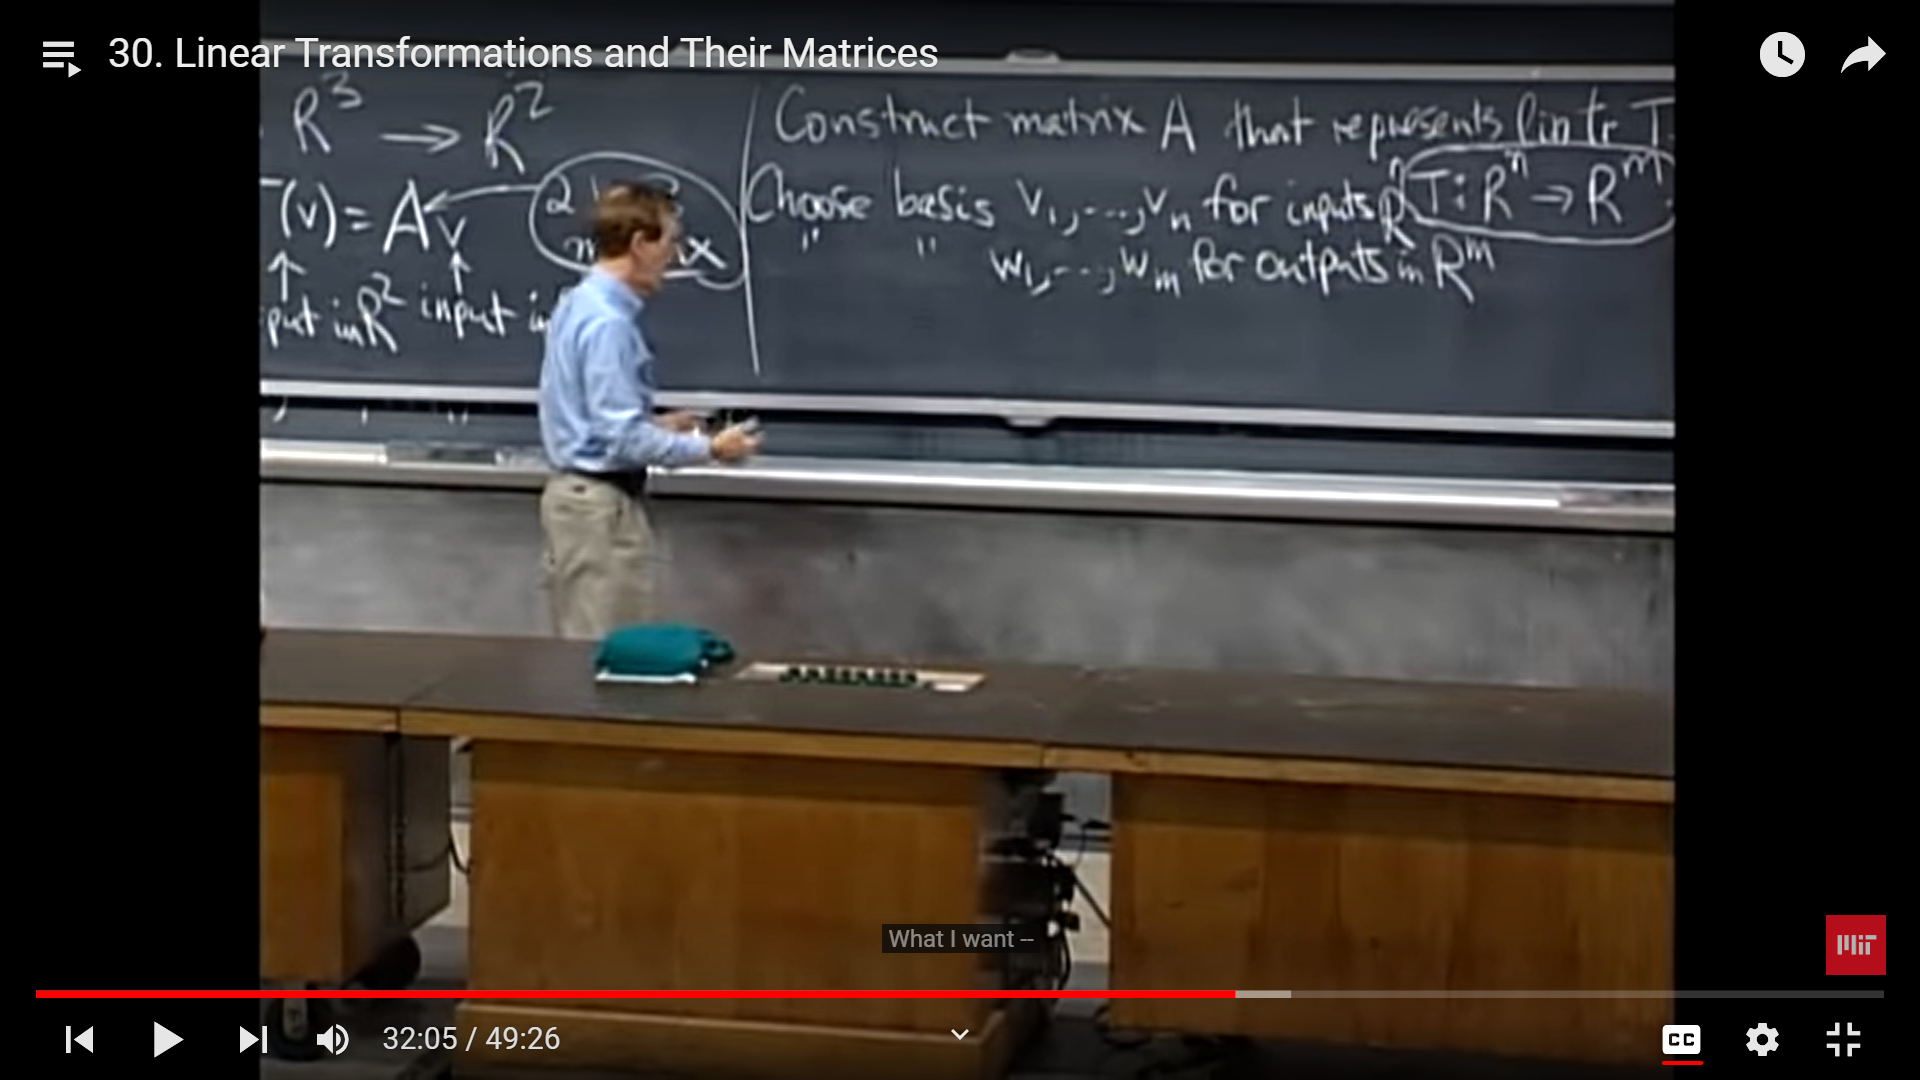 30. Linear Transformations and Their Matrices
R³ → R²
(v) = Av
put in R² input in
Construct matrix A that represents lin tr T
Choose basis v₁, ..., vₙ for inputs Rⁿ T: Rⁿ → Rᵐ
" " w₁, ..., wₘ for outputs in Rᵐ
What I want --
MIT
32:05 / 49:26
CC